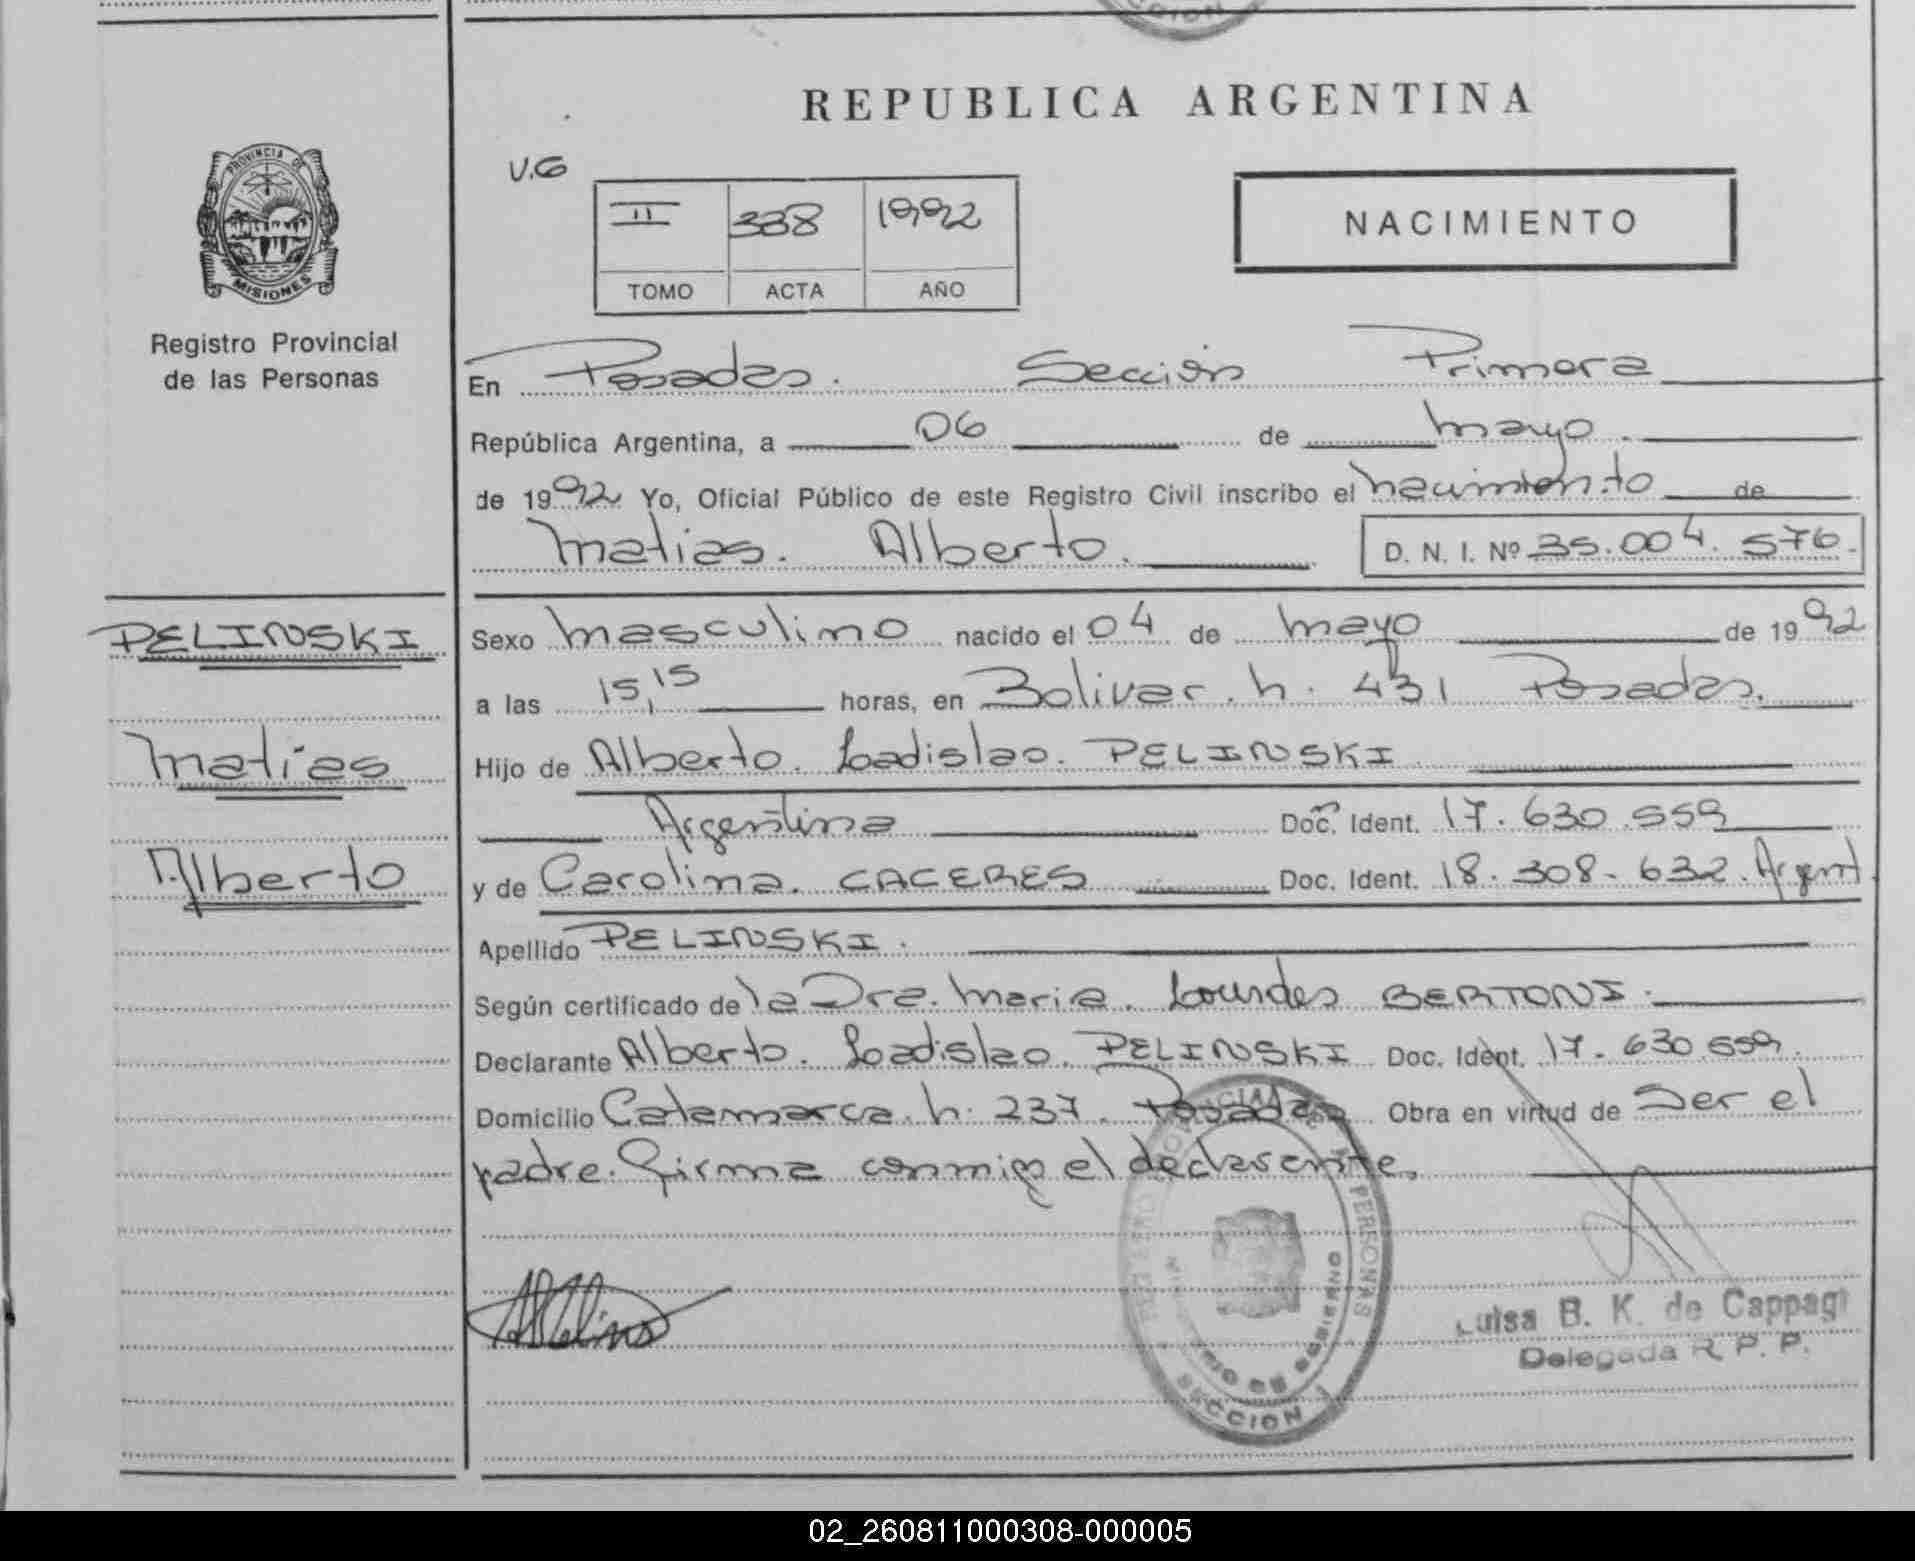 CCION
REPUBLICA ARGENTINA
PROVINCIA DE
MISIONES
Registro Provincial
de las Personas
V.G
II 338 1992
TOMO ACTA AÑO
NACIMIENTO
En Posadas. Sección Primera
República Argentina, a 06 de mayo.
de 1992 Yo, Oficial Público de este Registro Civil inscribo el nacimiento de
Matias. Alberto. D. N. I. Nº 35.004.576.
PELINSKI
Matias
Alberto
Sexo masculino nacido el 04 de mayo de 1992
a las 15,15 horas, en Bolivar. n. 431 Posadas.
Hijo de Alberto. Ladislao. PELINSKI
Argentina Doc. Ident. 17.630.559
y de Carolina. CACERES Doc. Ident. 18.308.632. Argent.
Apellido PELINSKI.
Según certificado de la Dra. Maria. Lourdes BERTONI.
Declarante Alberto. Ladislao. PELINSKI Doc. Ident. 17.630.559.
Domicilio Catamarca. n. 237. Posadas Obra en virtud de Ser el
padre. Firma conmigo el declarante.
PERSONAS
GOBIERNO
SECCION 1
Luisa B. K. de Cappagi
Delegada R. P. P.
02_260811000308-000005